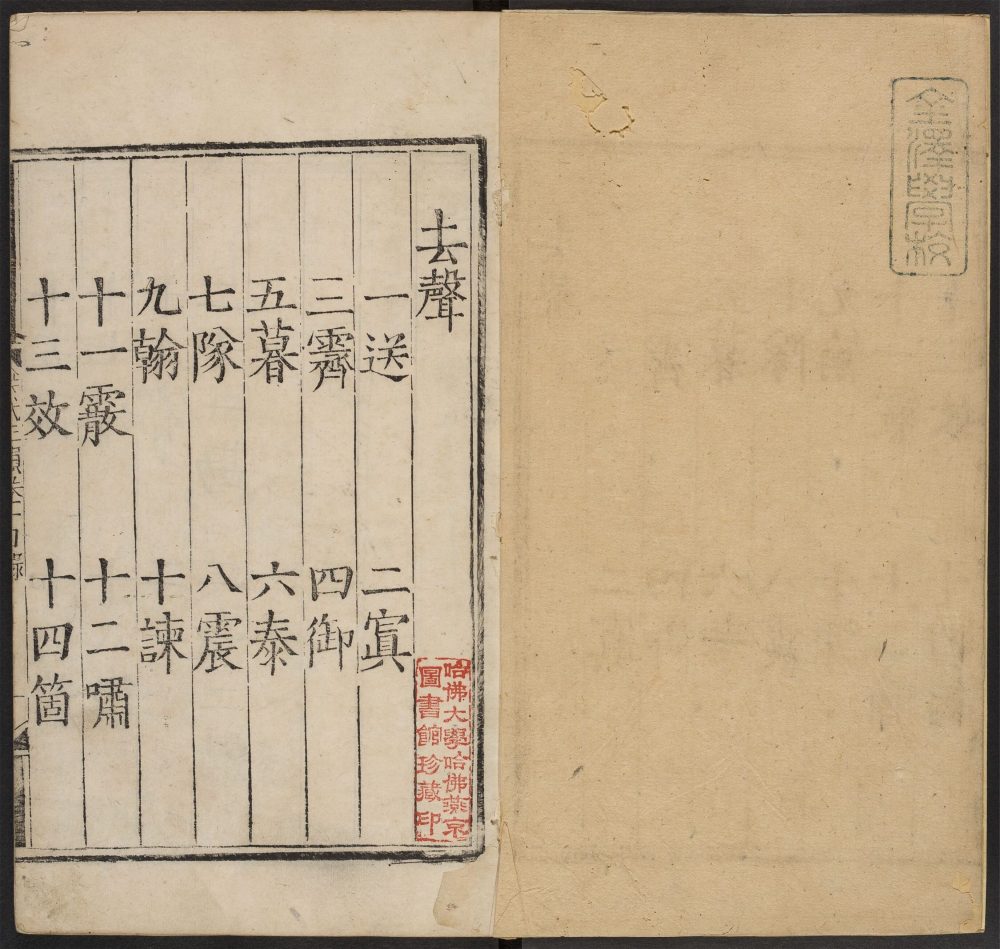 金澤學校
去聲
一送 二寘
三霽 四御
五暮 六泰
七隊 八震
九翰 十諫
十一霰 十二嘯
十三效 十四箇
哈佛大學哈佛燕京
圖書館珍藏印